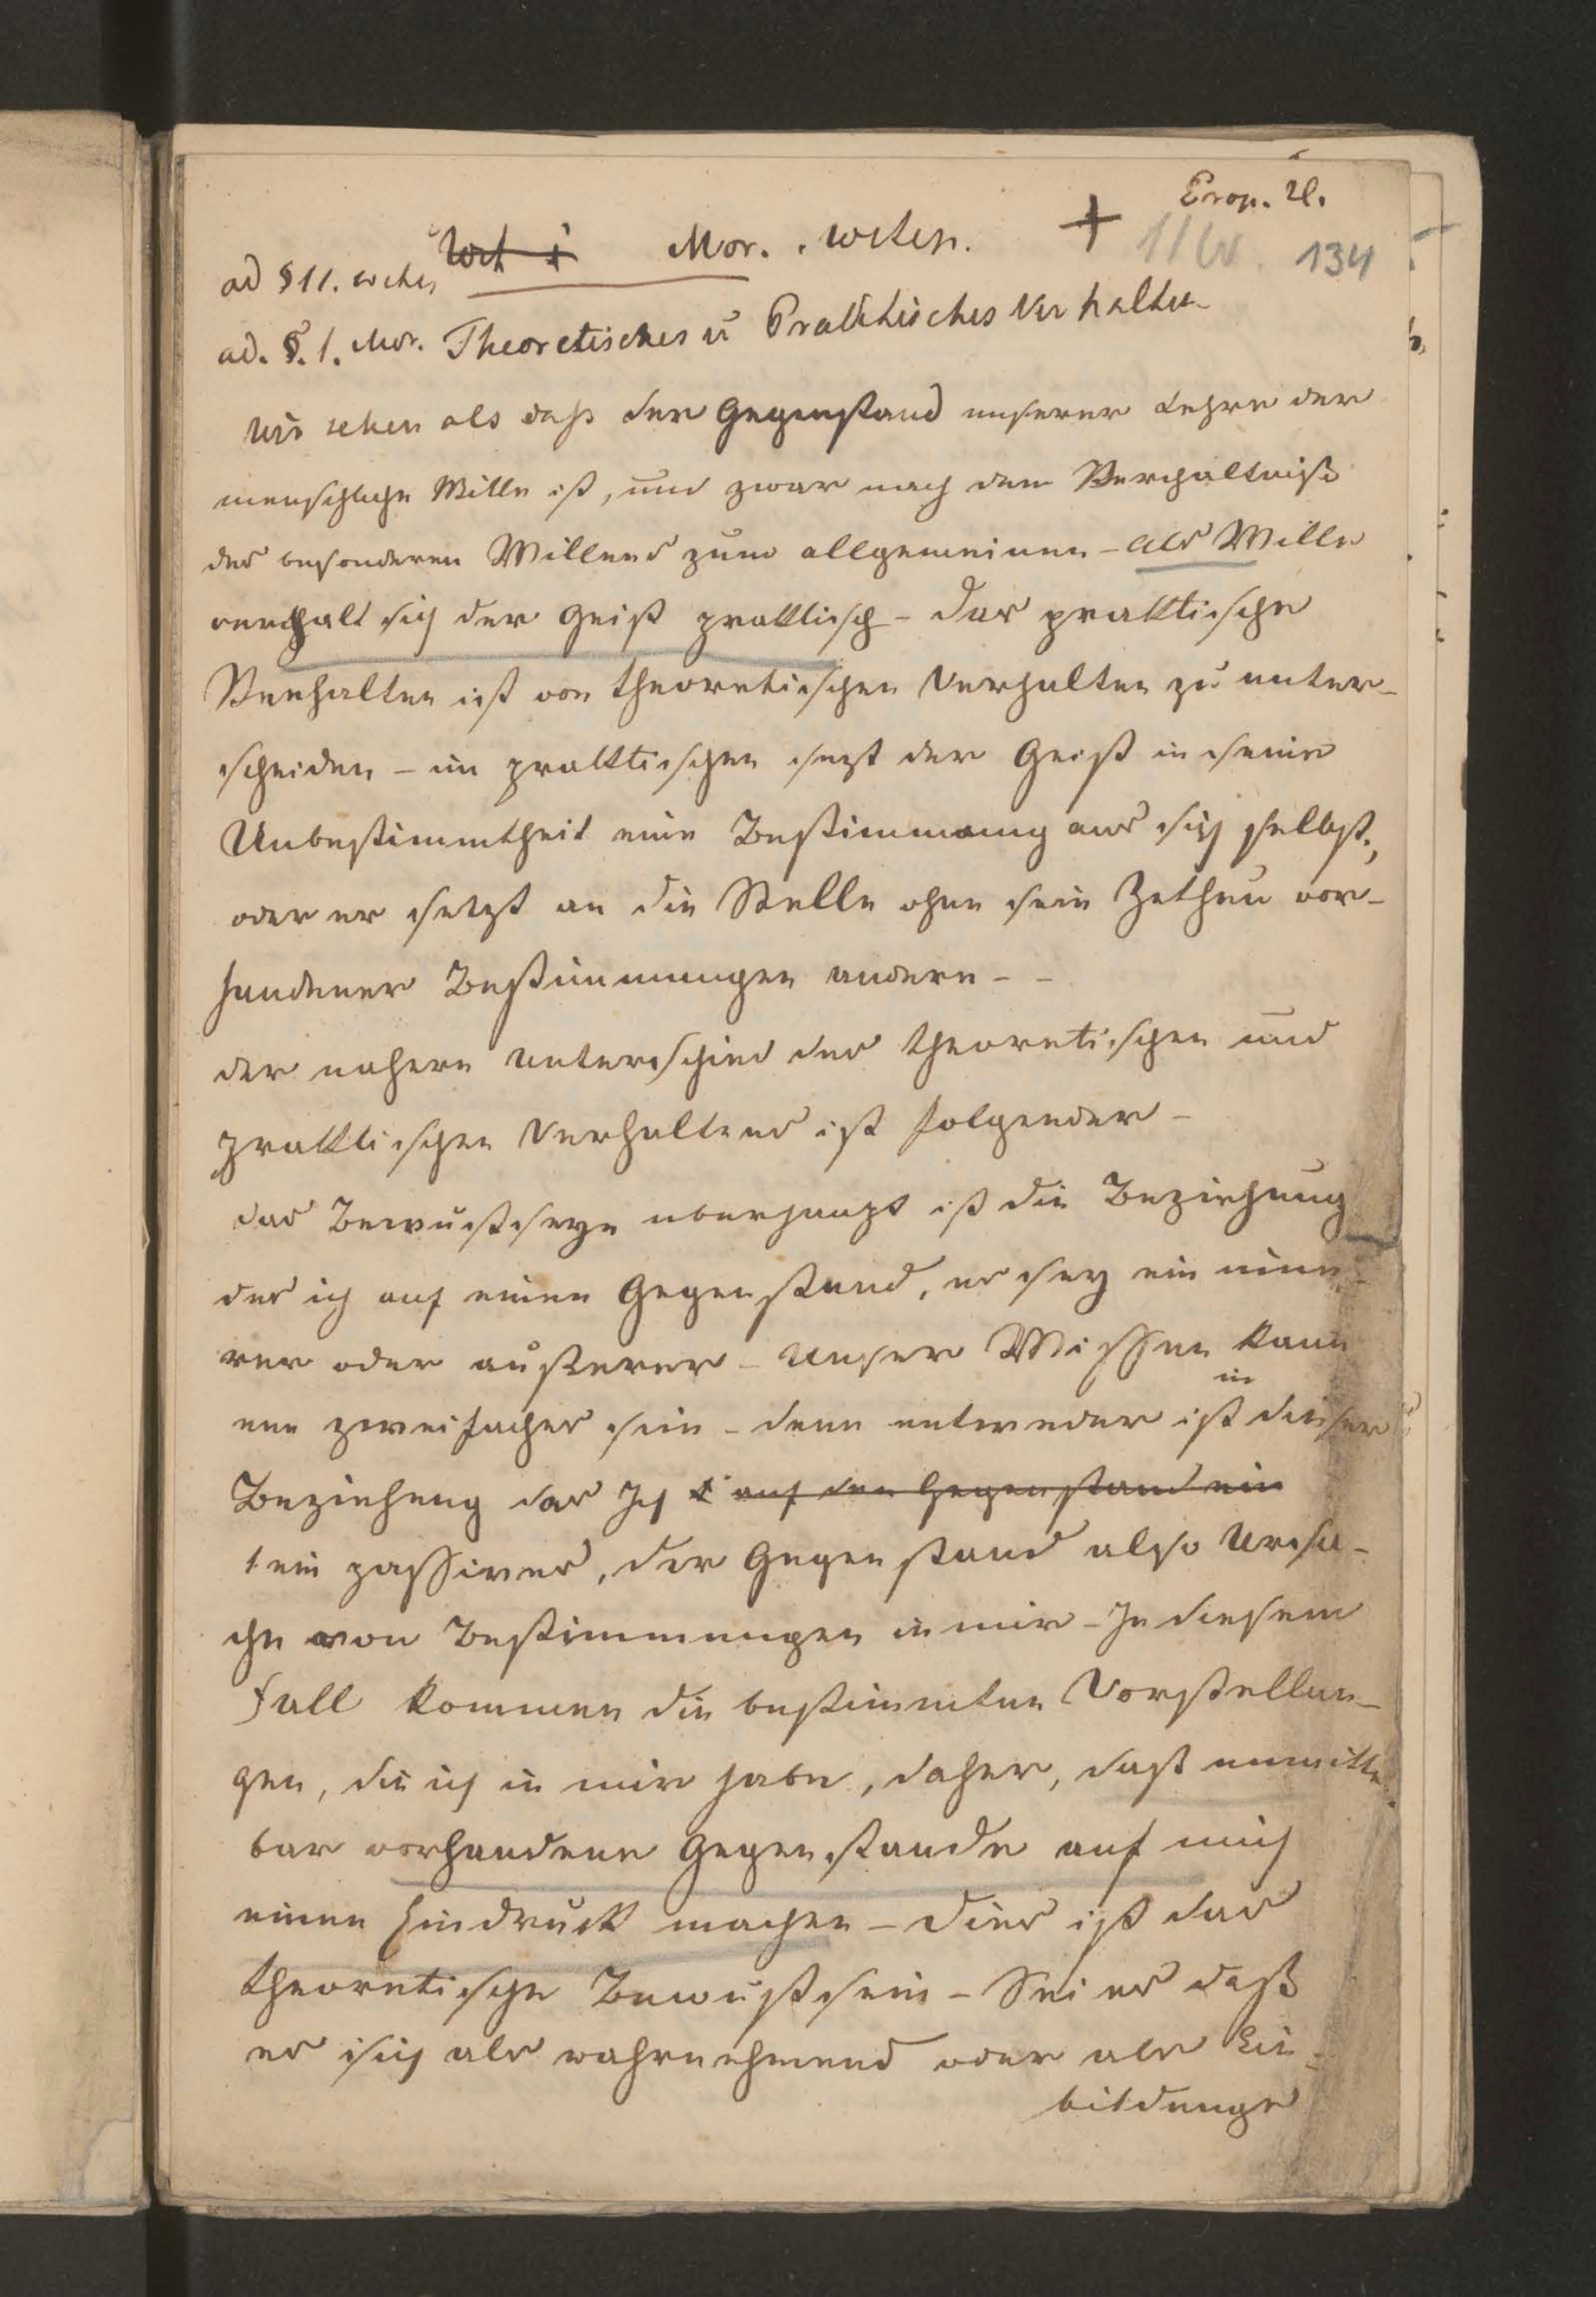 Prop. II.
Mor. 
134
ad § 11.
ad. §. 1. Mor. Theoretisches u Praktisches Verhalten
Wir sehen als daß der Gegenstand unserer Lehre der
menschliche Wille ist, und zwar nach dem Verhaltniß
des besonderen Willens zum allgemeinen - als Wille
verhalt sich der Geist praktisch - das praktische
Verhalten ist von theoretischen Verhalten zu unter-
scheiden - im praktischen setzt der Geist in seine
Unbestimmtheit eine Bestimmung aus sich selbst,
oder er setzt an die Stelle ohne sein Zuthun vor-
handener Bestimmungen andere - -
der nahere Unterschied des theoretischen und
praktischen Verhaltens ist folgender -
das Bewußtseyn uberhaupt ist die Beziehung
des ich auf einen Gegenstand, er sey ein inne-
rer oder außerer - Unser Wissen kann
ein zweifaches sein - denn entweder ist in dieser
Beziehung das Ich auf den Gegenstand ein
ein passives, der Gegenstand also Ursa-
che von Bestimmungen in mir - In diesem
Fall kommen die bestimmten Vorstellun-
gen, die ich in mir habe, daher, daß unmittel
bar vorhandene Gegenstande auf mich
einen Eindruck machen - dies ist das
theoretische Bewußtsein - Sei es daß
es sich als wahrnehmend oder als Ein-
bildungs